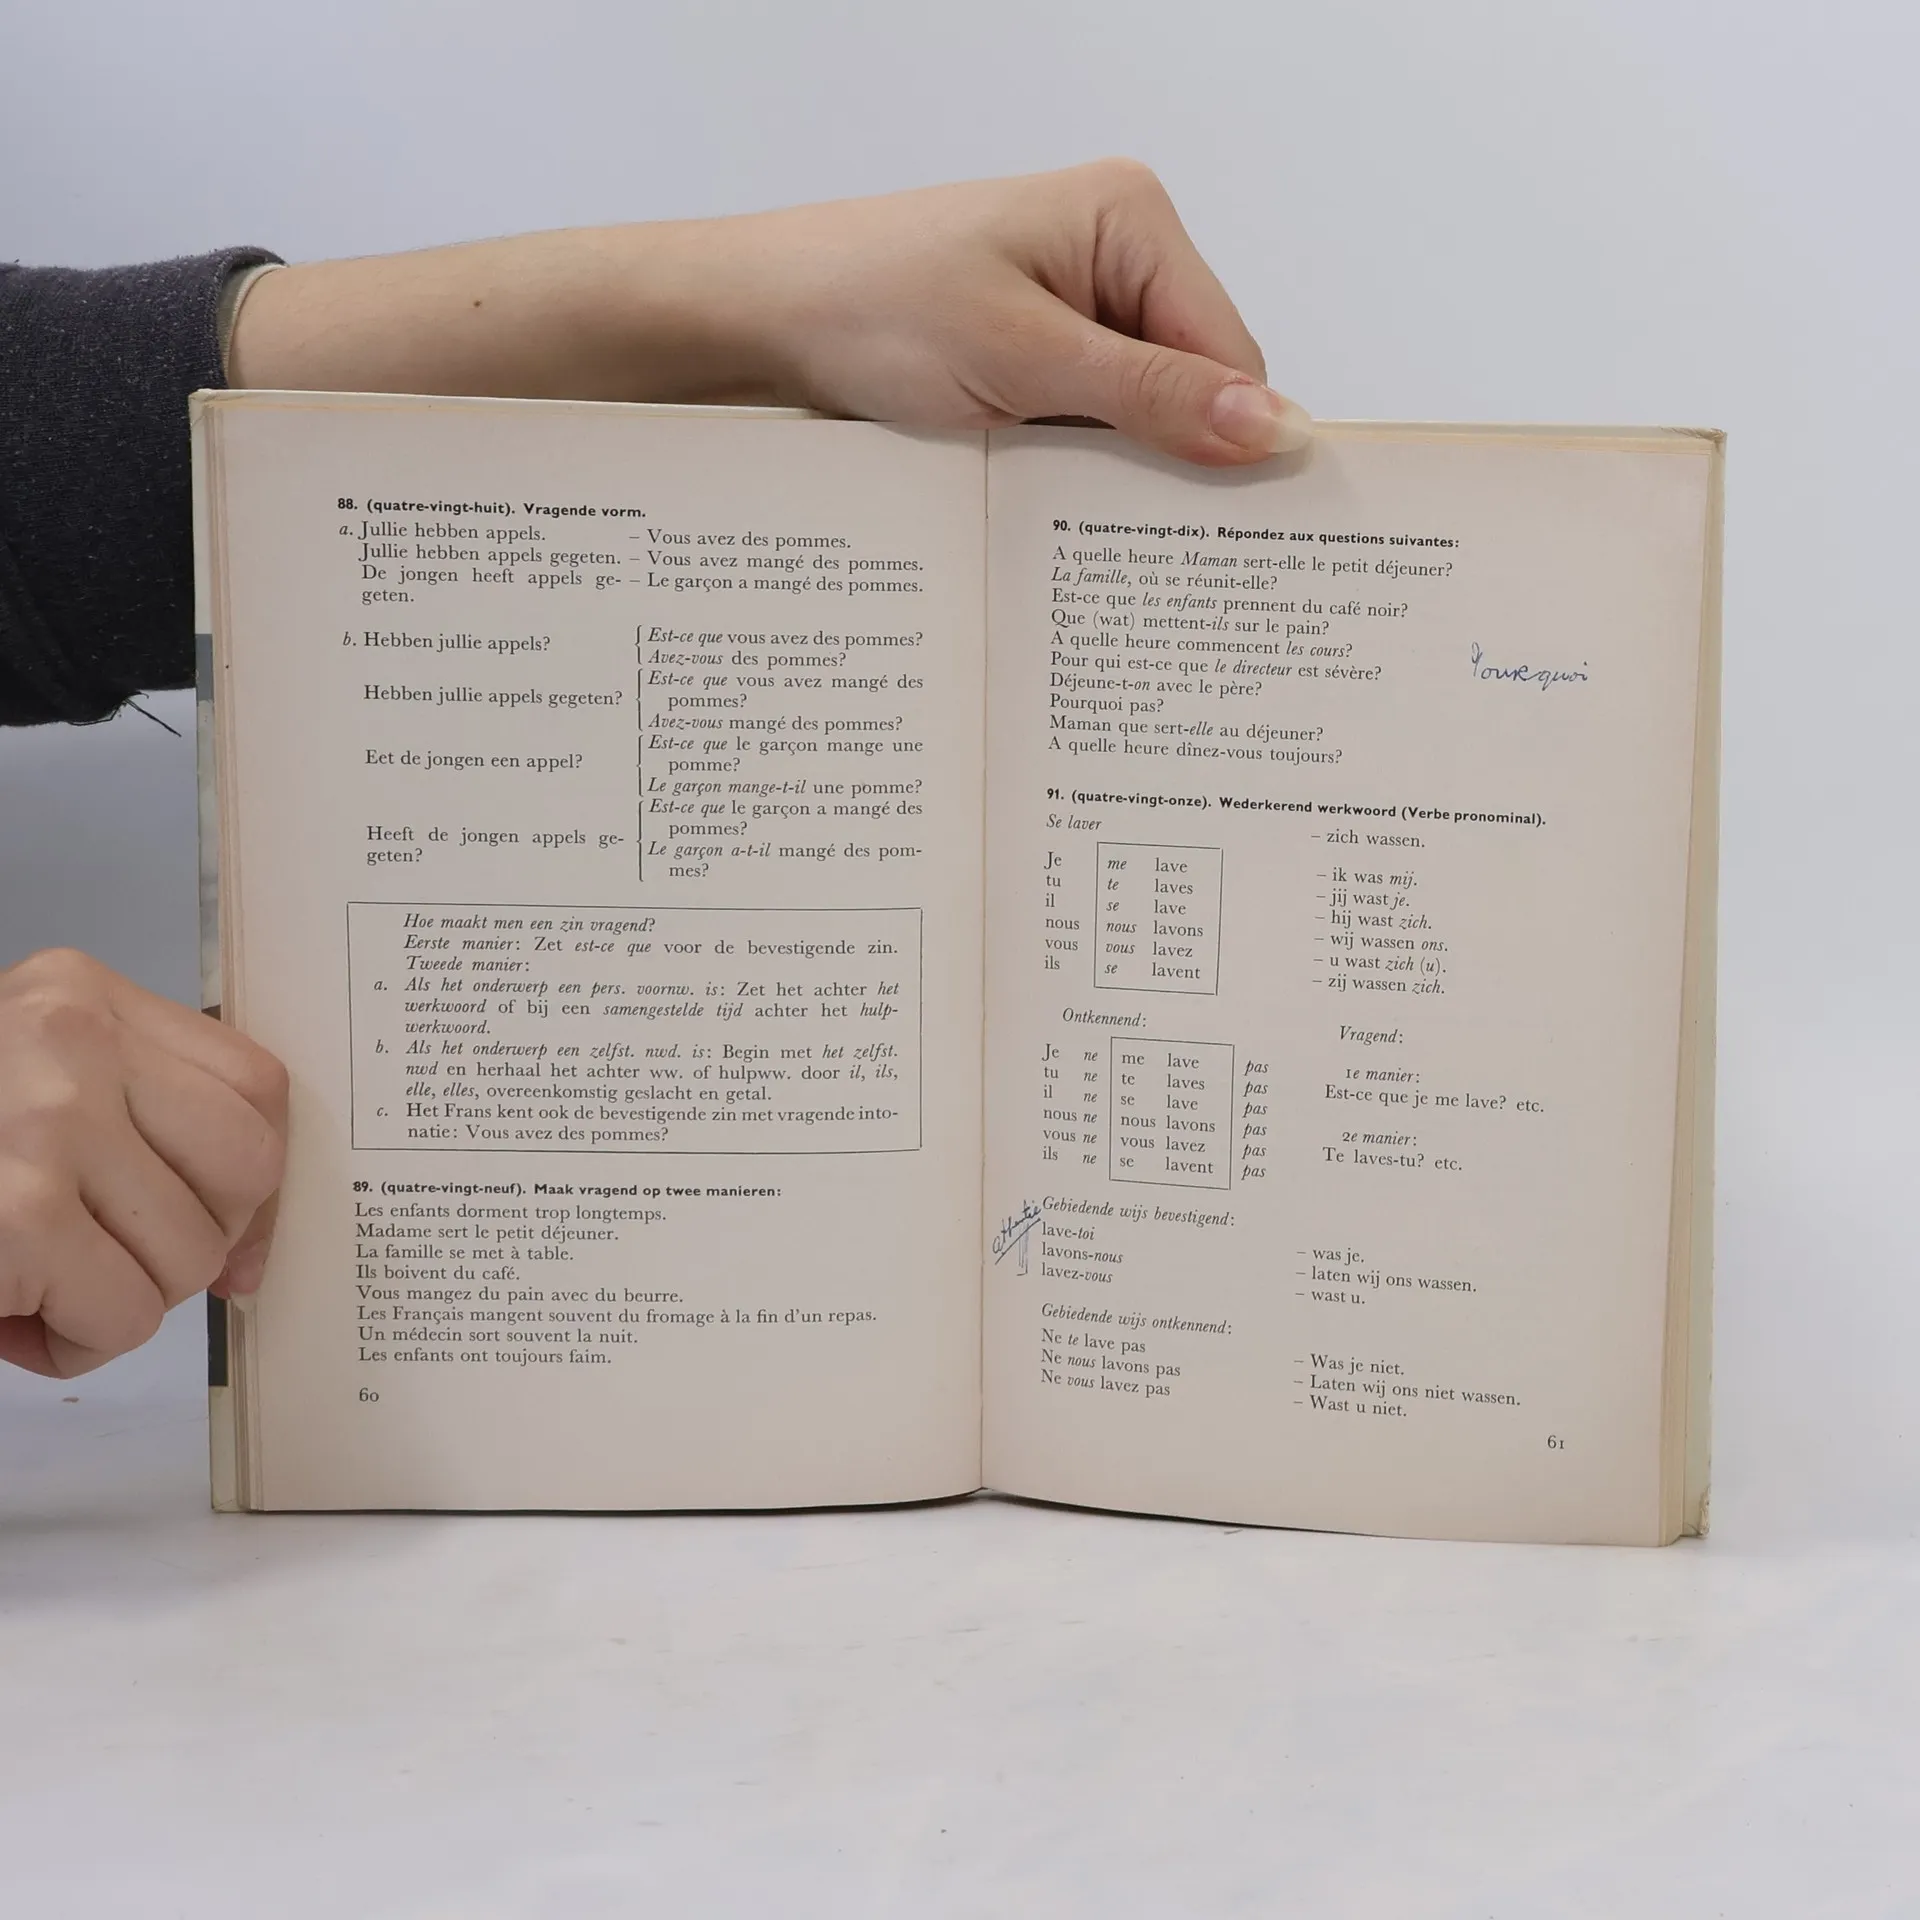 88. (quatre-vingt-huit). Vragende vorm.
a. Jullie hebben appels. – Vous avez des pommes.
Jullie hebben appels gegeten. – Vous avez mangé des pommes.
De jongen heeft appels ge- – Le garçon a mangé des pommes.
geten.
b. Hebben jullie appels? Est-ce que vous avez des pommes?
Avez-vous des pommes?
Hebben jullie appels gegeten? Est-ce que vous avez mangé des
pommes?
Avez-vous mangé des pommes?
Eet de jongen een appel? Est-ce que le garçon mange une
pomme?
Le garçon mange-t-il une pomme?
Heeft de jongen appels ge- Est-ce que le garçon a mangé des
geten? pommes?
Le garçon a-t-il mangé des pom-
mes?
Hoe maakt men een zin vragend?
Eerste manier: Zet est-ce que voor de bevestigende zin.
Tweede manier:
a. Als het onderwerp een pers. voornw. is: Zet het achter het
werkwoord of bij een samengestelde tijd achter het hulp-
werkwoord.
b. Als het onderwerp een zelfst. nwd. is: Begin met het zelfst.
nwd en herhaal het achter ww. of hulpww. door il, ils,
elle, elles, overeenkomstig geslacht en getal.
c. Het Frans kent ook de bevestigende zin met vragende into-
natie: Vous avez des pommes?
89. (quatre-vingt-neuf). Maak vragend op twee manieren:
Les enfants dorment trop longtemps.
Madame sert le petit déjeuner.
La famille se met à table.
Ils boivent du café.
Vous mangez du pain avec du beurre.
Les Français mangent souvent du fromage à la fin d'un repas.
Un médecin sort souvent la nuit.
Les enfants ont toujours faim.
60
90. (quatre-vingt-dix). Répondez aux questions suivantes:
A quelle heure Maman sert-elle le petit déjeuner?
La famille, où se réunit-elle?
Est-ce que les enfants prennent du café noir?
Que (wat) mettent-ils sur le pain?
A quelle heure commencent les cours?
Pour qui est-ce que le directeur est sévère?
Pourquoi
Déjeune-t-on avec le père?
Pourquoi pas?
Maman que sert-elle au déjeuner?
A quelle heure dînez-vous toujours?
91. (quatre-vingt-onze). Wederkerend werkwoord (Verbe pronominal).
Se laver – zich wassen.
Je me lave – ik was mij.
tu te laves – jij wast je.
il se lave – hij wast zich.
nous nous lavons – wij wassen ons.
vous vous lavez – u wast zich (u).
ils se lavent – zij wassen zich.
Ontkennend: Vragend:
Je ne me lave pas 1e manier:
tu ne te laves pas Est-ce que je me lave? etc.
il ne se lave pas
nous ne nous lavons pas 2e manier:
vous ne vous lavez pas Te laves-tu? etc.
ils ne se lavent pas
Gebiedende wijs bevestigend:
lave-toi – was je.
lavons-nous – laten wij ons wassen.
lavez-vous – wast u.
Gebiedende wijs ontkennend:
Ne te lave pas – Was je niet.
Ne nous lavons pas – Laten wij ons niet wassen.
Ne vous lavez pas – Wast u niet.
61